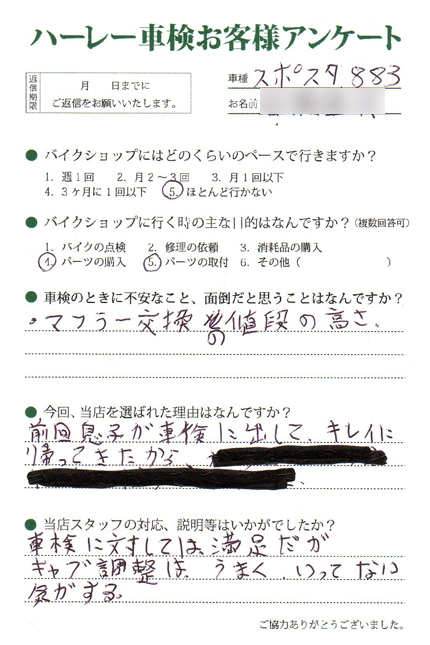 ハーレー車検お客様アンケート
返信期限
月　　日までに
ご返信をお願いいたします。
車種 スポスタ883
お名前
● バイクショップにはどのくらいのペースで行きますか？
1. 週1回　2. 月2～3回　3. 月1回以下
4. 3ヶ月に1回以下　5. ほとんど行かない
● バイクショップに行く時の主な目的はなんですか？（複数回答可）
1. バイクの点検　2. 修理の依頼　3. 消耗品の購入
4. パーツの購入　5. パーツの取付　6. その他（　　　　　）
● 車検のときに不安なこと、面倒だと思うことはなんですか？
・マフラー交換の値段の高さ、
● 今回、当店を選ばれた理由はなんですか？
前回息子が車検に出して、キレイに
帰ってきたから
● 当店スタッフの対応、説明等はいかがでしたか？
車検に対しては満足だが
キャブ調整は、うまく、いってない
気がする。
ご協力ありがとうございました。